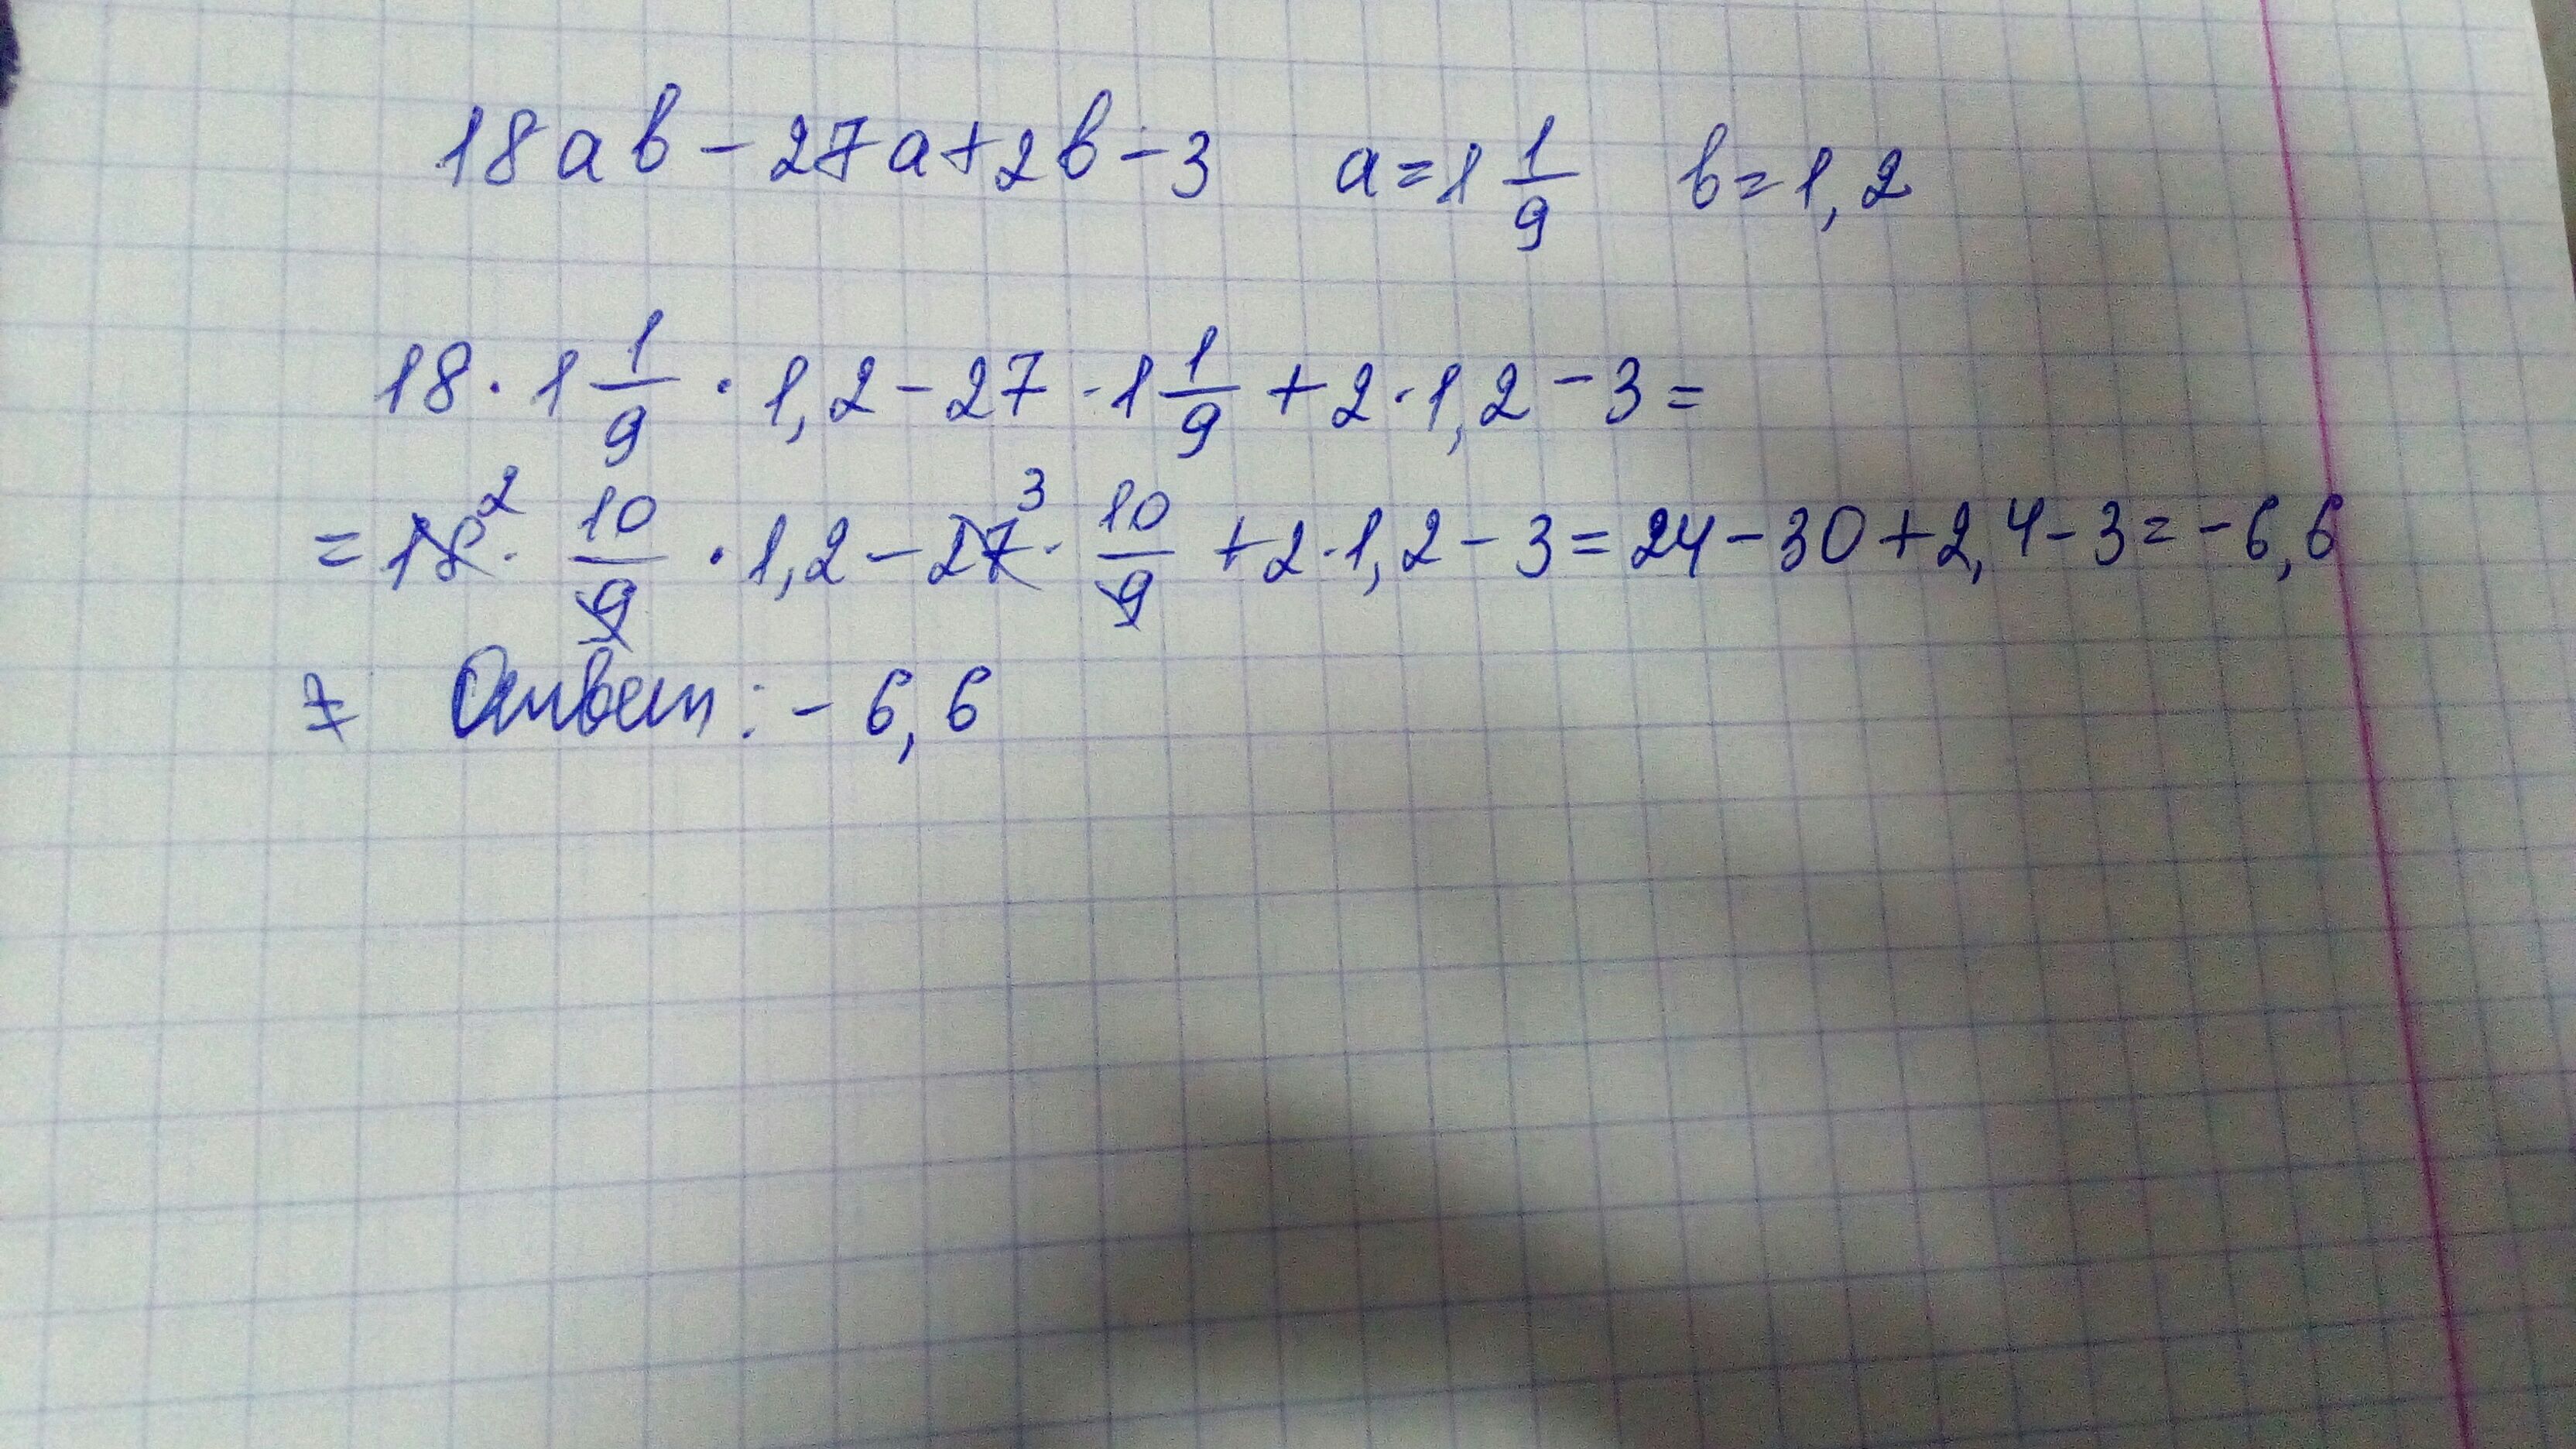 18ав - 27а + 2в - 3 а = 1 1/9 в = 1,2
18 · 1 1/9 · 1,2 - 27 · 1 1/9 + 2 · 1,2 - 3 =
= 18² · 10/9 · 1,2 - 27³ · 10/9 + 2 · 1,2 - 3 = 24 - 30 + 2,4 - 3 = -6,6
Ответ: - 6,6